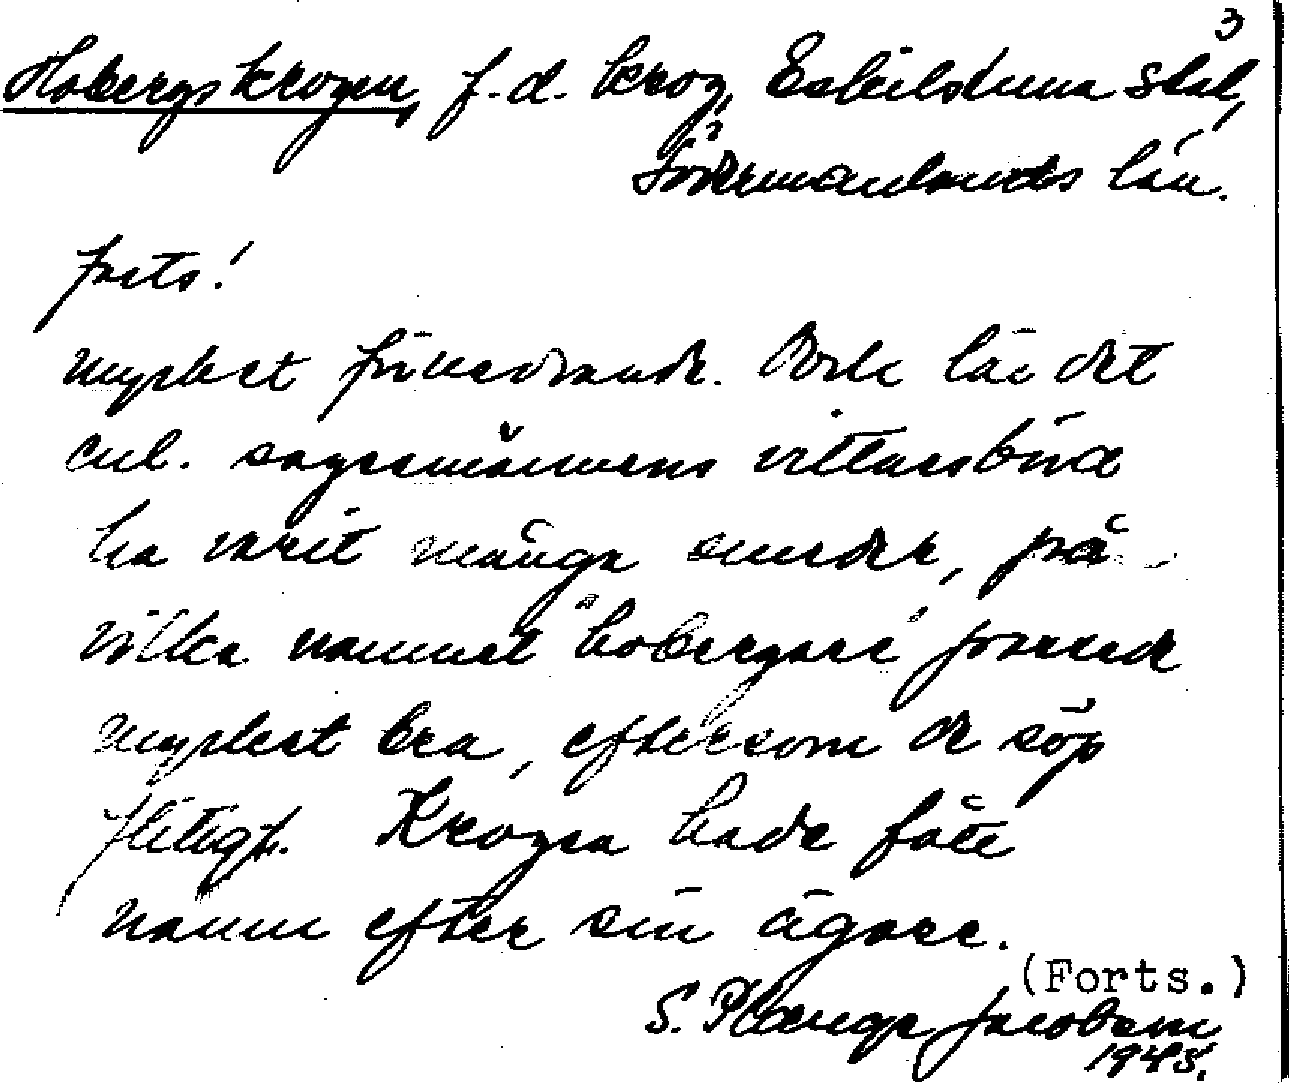 3
Hobergskrogen, f.d. krog, Eskilstuna stad,
Södermanlands län.
forts!
mycket förneedrande. Dock lär det
enl. sagesmännens vittnesbörd
ha varit många smeder, på
vilka namnet "hobergare" passade
mycket bra, eftersom de söp
flitigt. Krogen hade fått
namn efter sin ägare.
(Forts.)
S. Plænge Jacobson
1945.